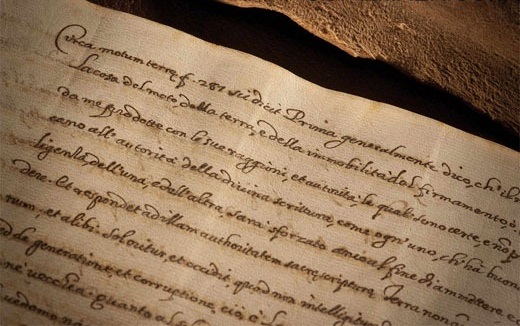 Circa motum terrę, f. 287 sic dicit Prima generalmente dico, ch'il
la cosa del moto della terra, e della immobilità del firmamento, ò
da me prodotte con le sue raggioni, et autorità le quali sono certe, e non p
cano all'autorità della divina scrittura, come ogn'uno, ch'hà buon
ligenza dell'una, e dell'altra, sarà sforzato ancora al fine di ammettere, e
dere. Et respondet ad illam authoritatem sacre scripture, Terra
num, et alibi. sol oritur, et occidit, quod non intelligi
generatione, et corruptione, cioè